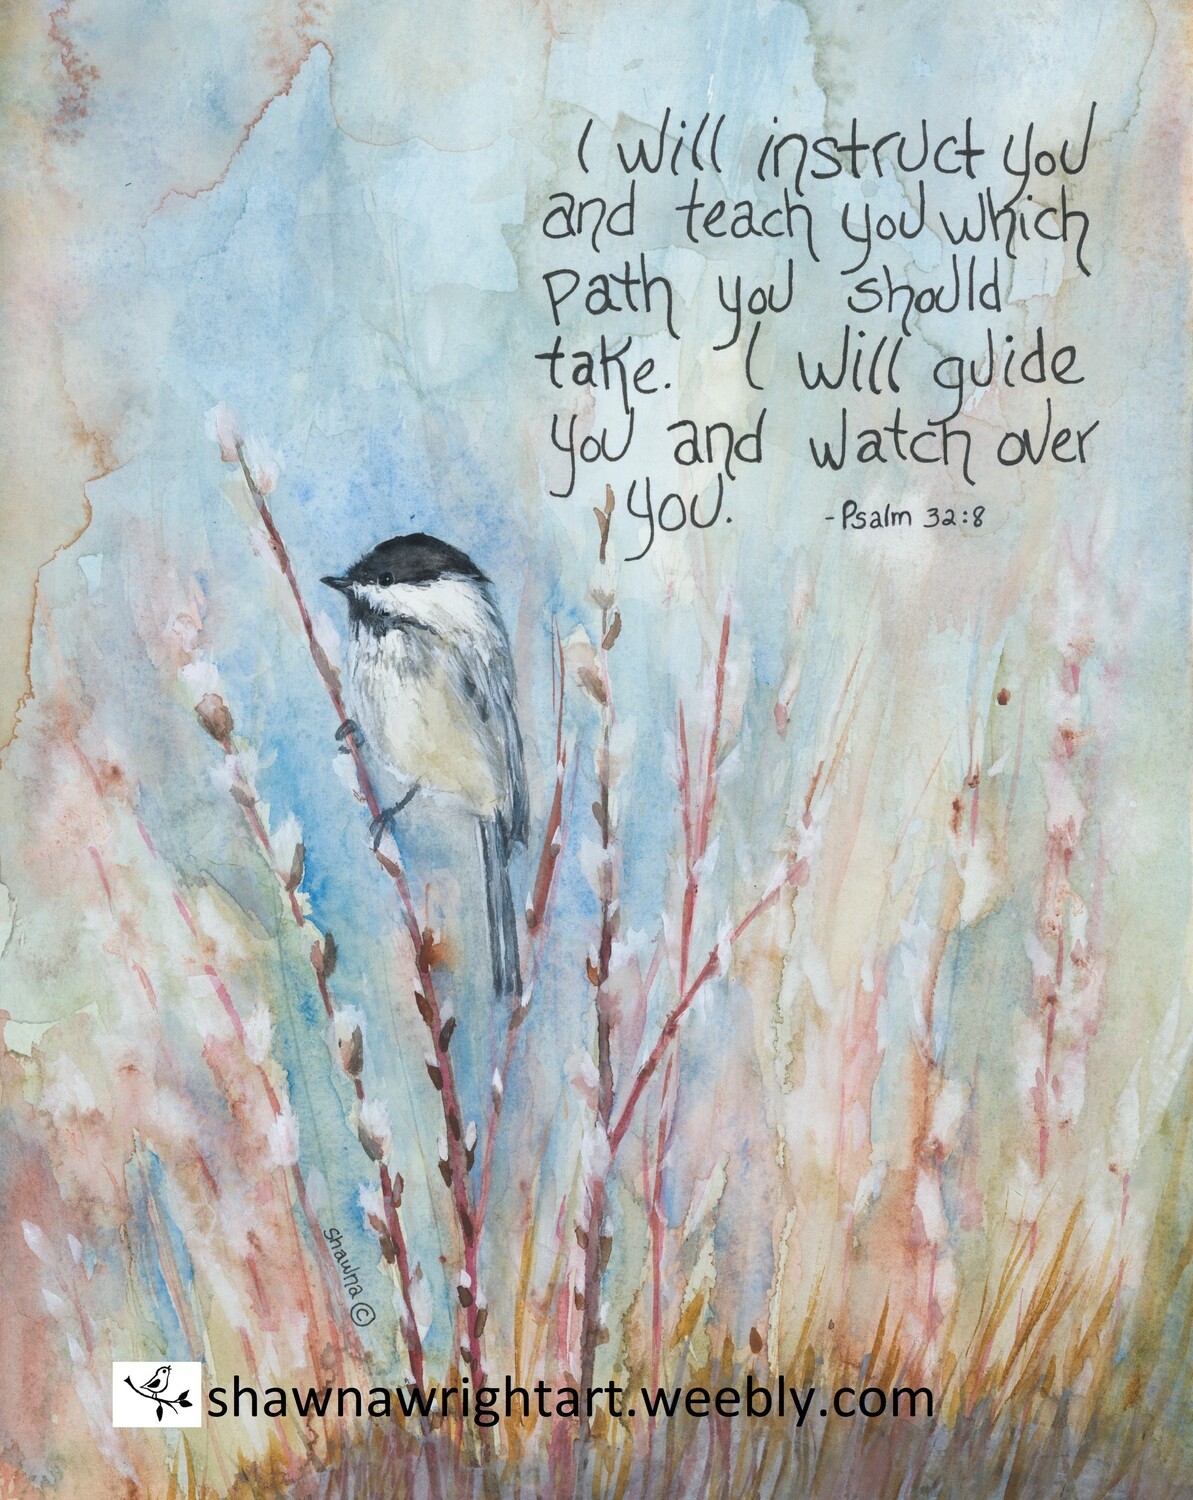 I will instruct you
and teach you which
path you should
take. I will guide
you and watch over
you.
-Psalm 32:8
Shawna ©
shawnawrightart.weebly.com